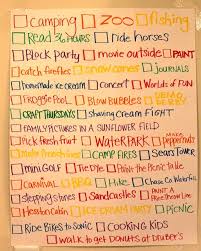 camping ZOO fishing
Read 36 hours ride horses
Block party movie outside PAINT
catch fireflies snow cones JOURNALS
homemade ice cream concert Worlds of FUN
Froggie Pool Blow Bubbles DEAD BERRY
CRAFT THURSDAYS Shaving Cream FIGHT
FAMILY PICTURES IN A SUNFLOWER FIELD
Pick fresh fruit WaterPARK Make peppermints
homemade Movie CAMP FIRES Sears Tower
mini Golf Tie Die Paint the Picnic table
CARNIVAL BBQ Hike Chase Co Waterfall
stepping stones Sandcastles PAINT A
Hesston Cabin ICE CREAM PARTY PICNIC
Ride Bikes to Sonic COOKING KIDS
walk to get DONUTS at Druber's